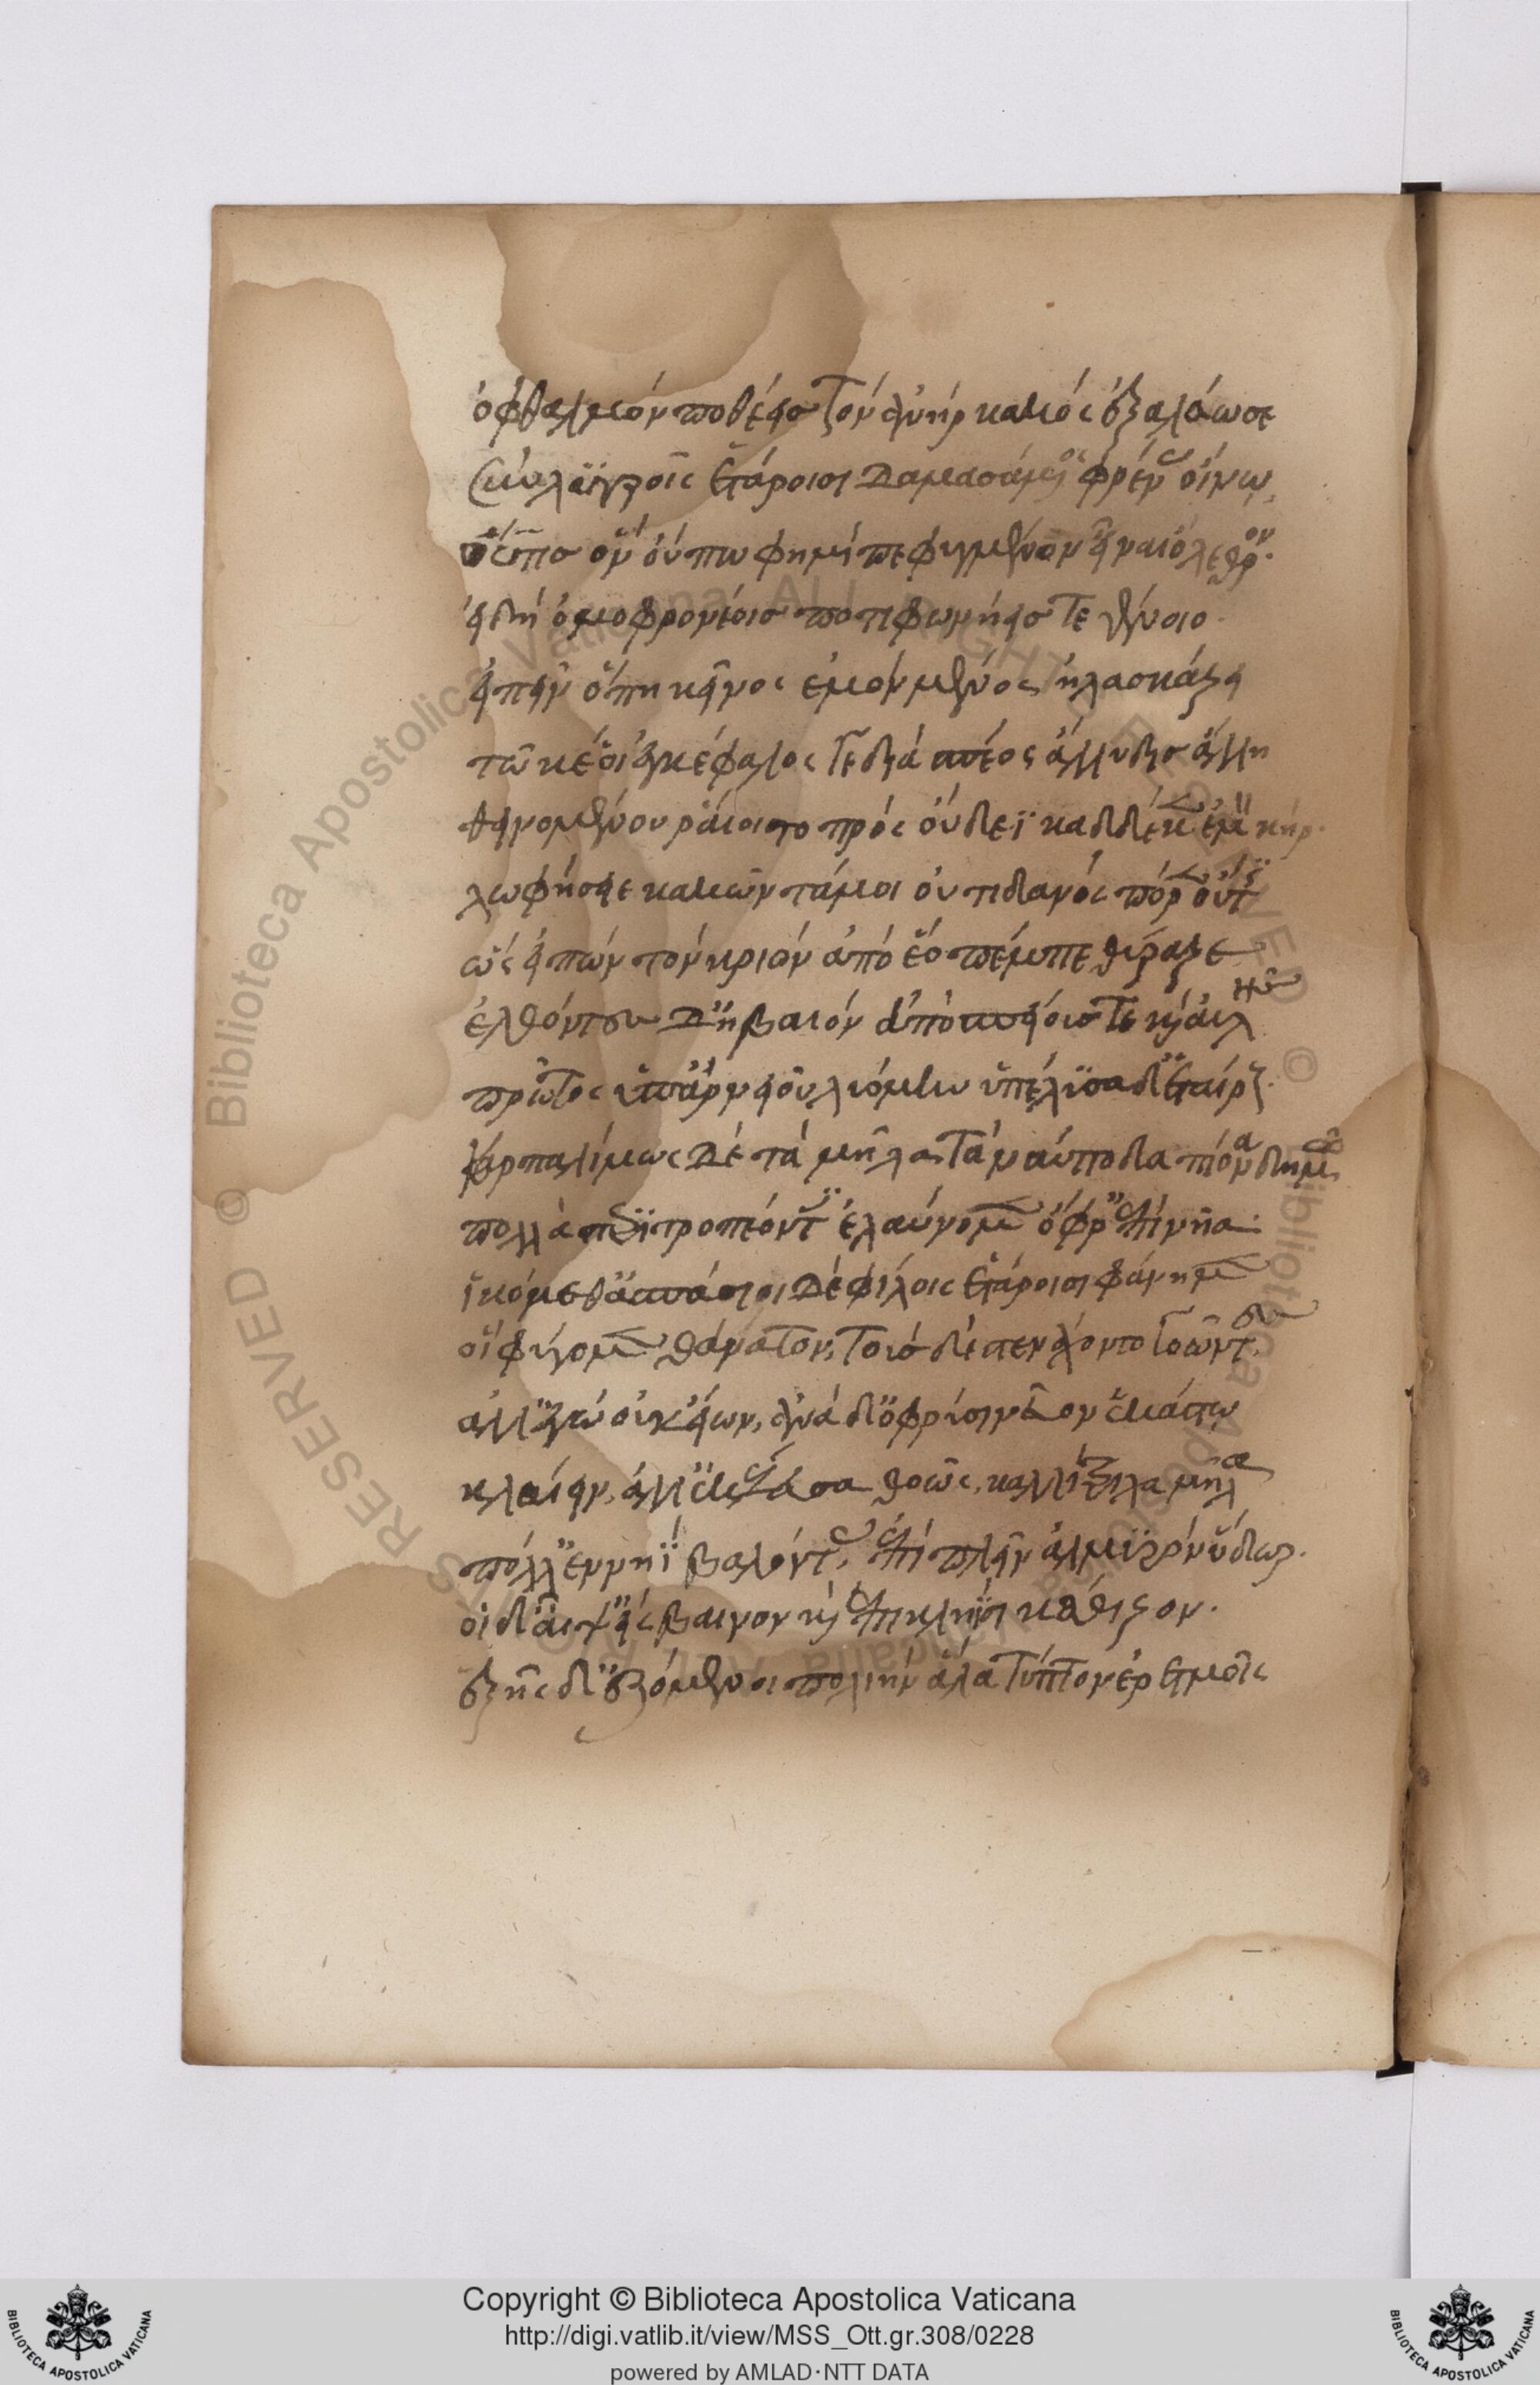 ὀφθαλμὸν ποθέεις τὸν ἀνὴρ κακὸς ἐξαλάωσε
σὺν λυγροῖς ἑτάροισι δαμασάμενος φρένας οἴνω,
οὖτις ὃν οὔπω φημὶ πεφυγμένον εἶναι ὄλεθρον.
εἰ δὴ ὁμοφρονέοις ποτιφωνήεις τε γένοιο.
εἰπεῖν ὅπη κεῖνος ἐμὸν μένος ἠλασκάζει
τῶ κέ οἱ ἐγκέφαλος γε διὰ σπέος ἄλλυδις ἄλλη
θεινομένου ῥαίοιτο πρὸς οὔδεϊ καδδέ κ' ἐμὸν κῆρ.
λωφήσειε κακῶν τά μοι οὐτιδανὸς πόρεν οὖτις
ὣς εἰπὼν τὸν κριὸν ἀπὸ ἕο πέμπε θύραζε
ἐλθόντες δ' ἠβαιὸν ἀπὸ σπείους τε καὶ αὐλῆς
πρῶτος ὑπ' ἀρνειοῦ λυόμην ὑπέλυσα δ' ἑταίρους.
καρπαλίμως δὲ τὰ μῆλα ταναύποδα πίονα δημῶ
πολλὰ περιτροπέοντες ἐλαύνομεν ὄφρ' ἐπὶ νῆα.
ἱκόμεθ' ἀσπάσιοι δὲ φίλοις ἑτάροισι φάνημεν
οἳ φύγομεν θάνατον, τοὺς δὲ στενάχοντο γοῶντες.
ἀλλ' ἐγὼ οὐκ εἴων, ἀνὰ δ' ὀφρύσι νεῦον ἑκάστω
κλαίειν, ἀλλ' ἐκέλευσα θοῶς, καλλίτριχα μῆλα
πόλλ' ἐν νηῒ βαλόντας, ἐπιπλεῖν ἁλμυρὸν ὕδωρ.
οἱ δ' αἶψ' εἴσβαινον καὶ ἐπὶ κληῖσι κάθιζον.
ἑξῆς δ' ἑζόμενοι πολιὴν ἅλα τύπτον ἐρετμοῖς
Copyright © Biblioteca Apostolica Vaticana
http://digi.vatlib.it/view/MSS_Ott.gr.308/0228
powered by AMLAD·NTT DATA